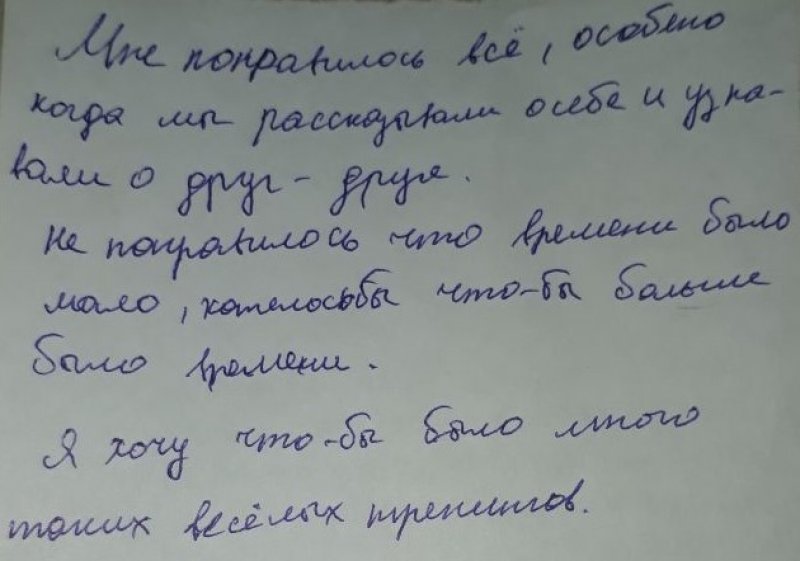 Мне понравилось всё, особено
когда мы рассказывали о себе и узна-
вали о друг-друге.
Не понравилось что времени было
мало, хотелосьбы что-бы больше
было времени.
Я хочу что-бы было много
таких весёлых тренингов.